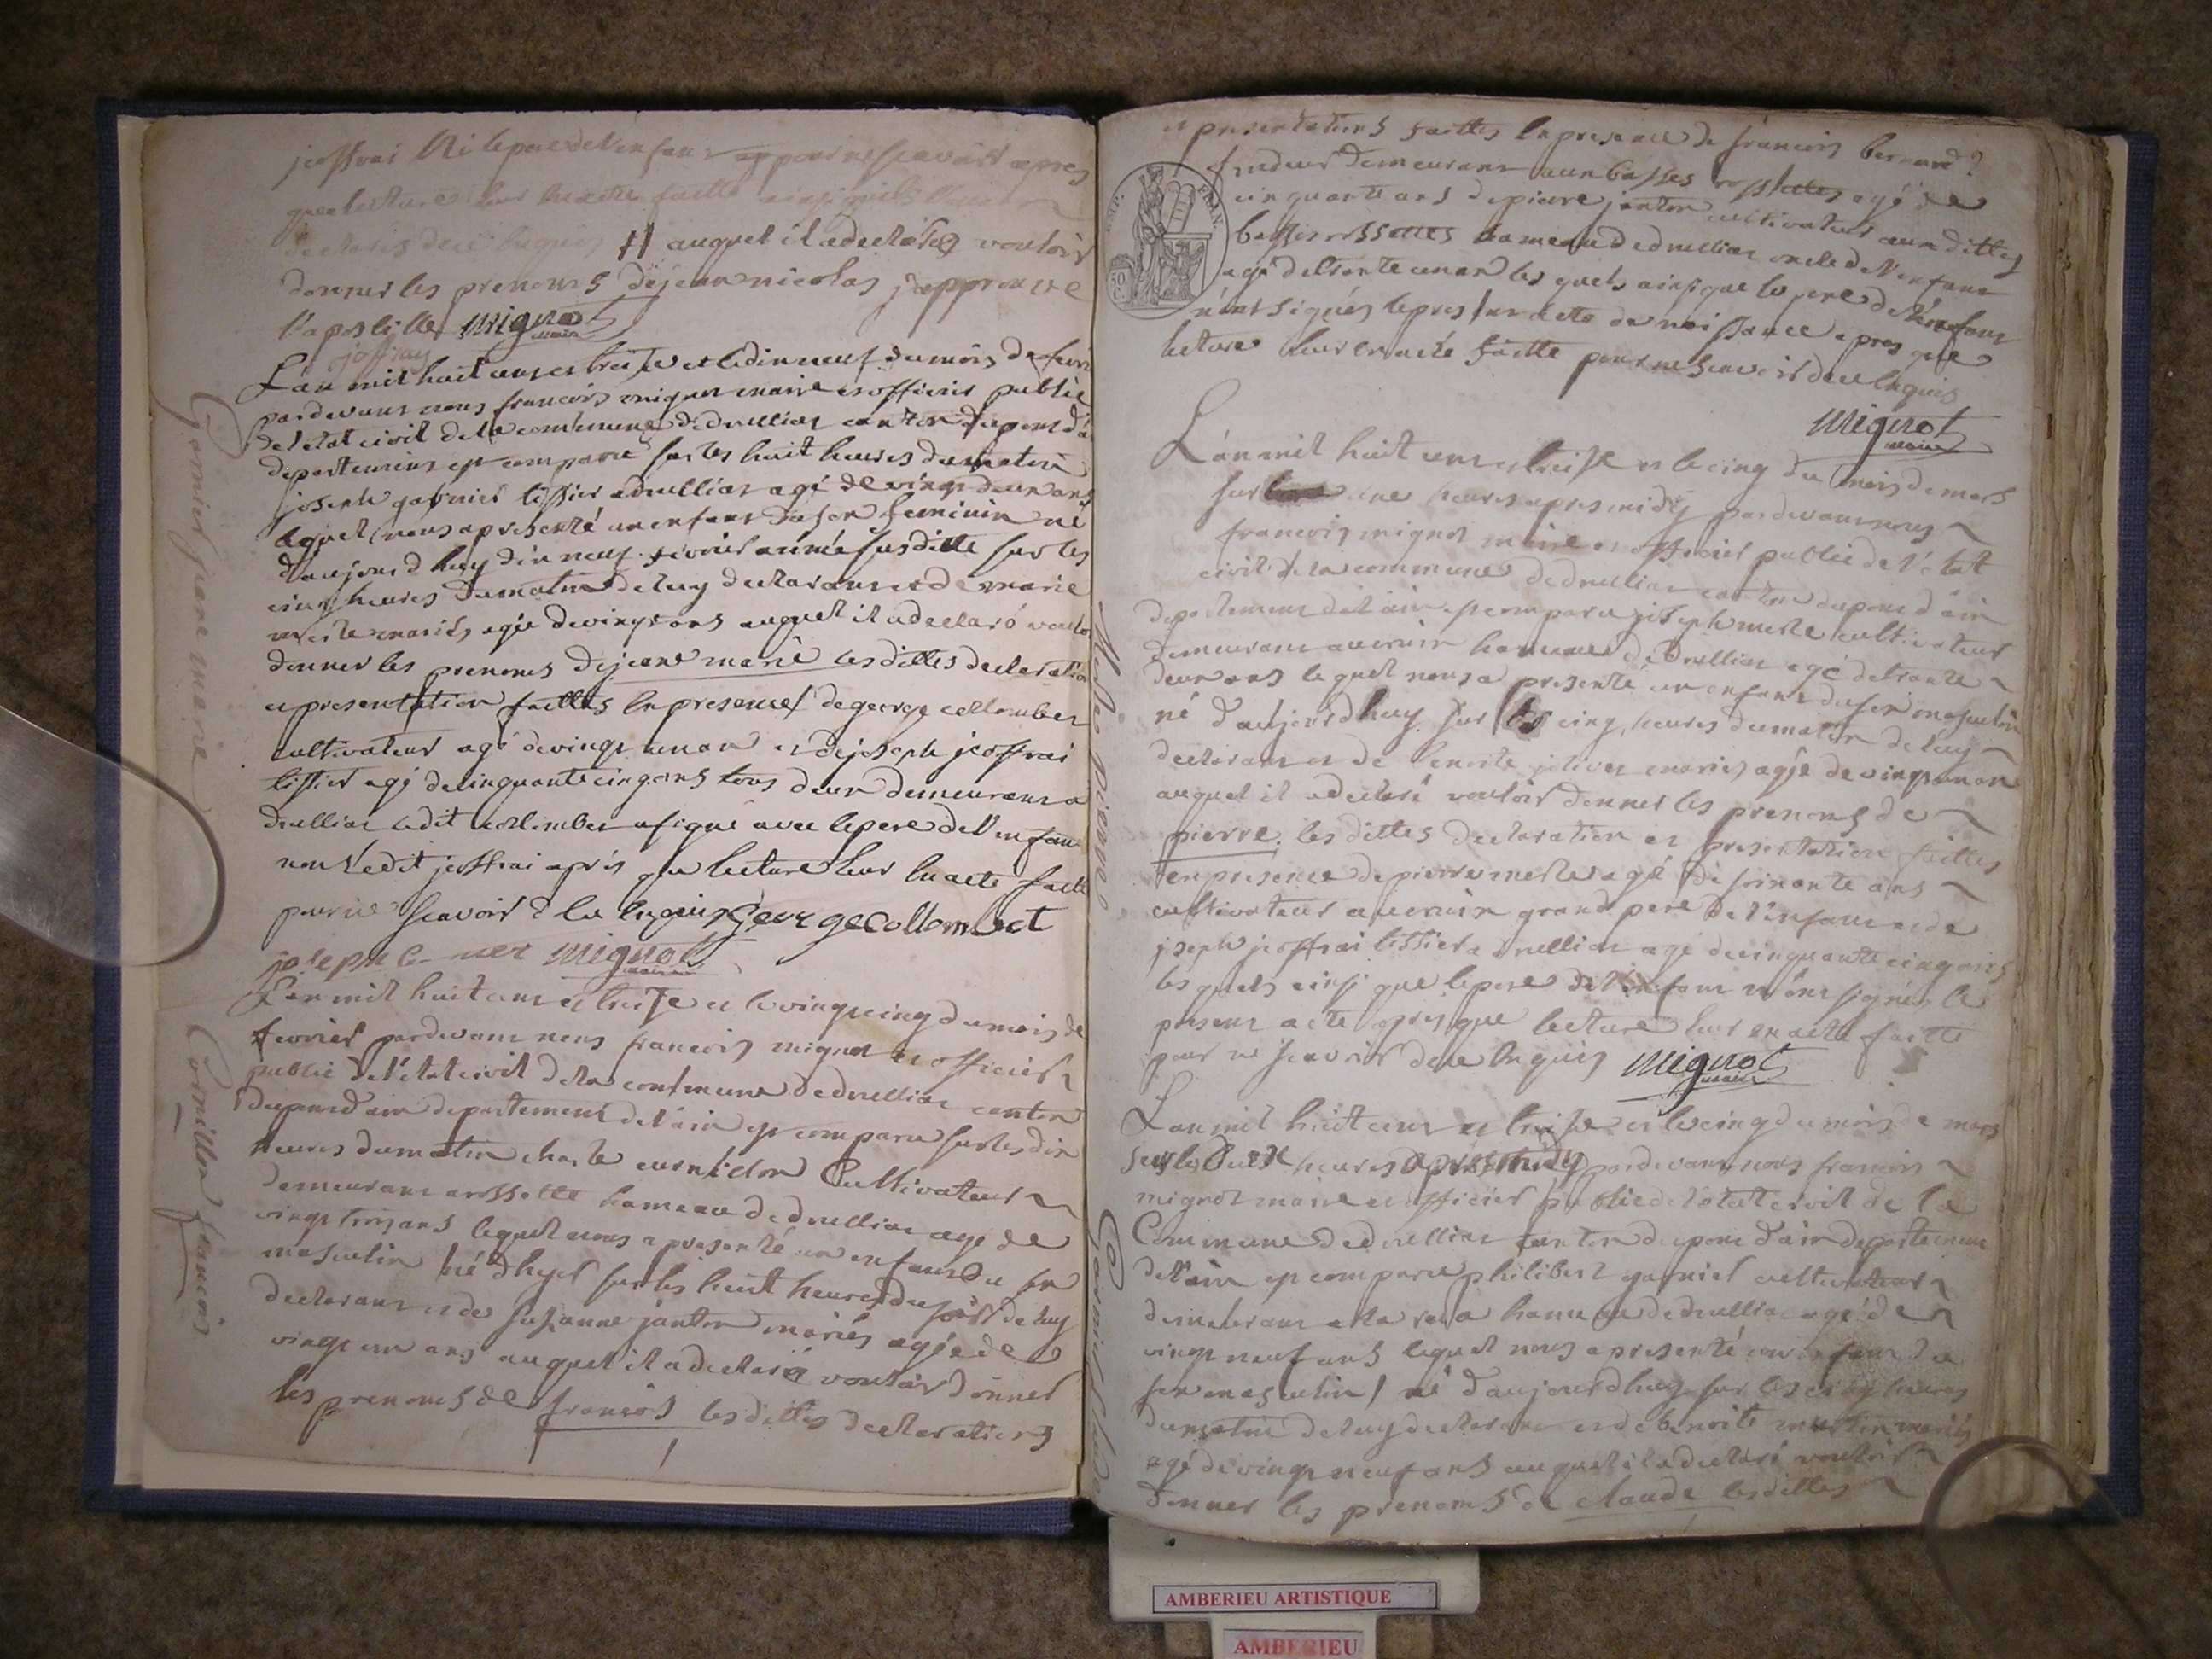 jeoffrai Ni le pere de l'enfant pour ne scavoir apres
que lecture leur en acte faitte ainsi qu'ils l'ont
declarés de ce enquis # auquel il a declaré vouloir
donner les prenoms de jean nicolas j'approuve
l'apostille mignot
maire
joffray
L'an mil huit cens et treise et le dix neuf du mois de fevri
pardevant nous francois mignot maire et officier public
de l'etat civil de la commune de druillias canton du pont d'a
departement est comparu sur les huit heures du matin
joseph garnier tissier a druillias agé de vingt deux ans
lequel nous a presenté un enfant du sex feminin né
d'aujourd huy dix neuf fevrier année susditte sur les
cinq heures du matin de luy declarant et de marie
merle mariés agée de vingt ans auquel il a declaré voulo
donner les prenoms de jeane marie les dittes declaratio
et presentation faittes en presence de george collombet
cultivateur agé de vingt un an et de joseph jeoffrai
tissier agé de cinquante cinq ans tous deux demeurans a
druillias ledit collombet a signé avec le pere de l'enfan
non ledit jeoffrai après que lecture leur en acte faitte
pour ne scavoir de ce enquis George Collombet
joseph garnier mignot
maire
L'an mil huit cens et treise et le vingt cinq du mois de
fevrier pardevant nous francois mignot et officier
public de l'etat civil de la commune de druillias canton
du pont d'ain departement de l'ain est comparu sur les dix
heures du matin charle cornillon Cultivateur
demeurant a rossette hameau de druillias agé de
vingt trois ans lequel nous a presenté un enfant du sex
masculin né d'hyer sur les huit heures du soir de luy
declarant et de susanne janton mariés agée de
vingt un ans auquel il a declaré vouloir donner
les prenoms de francois les dittes declarations
Garnier jeane marie
Cornillon francois
et presentations faittes en presence de francois bernard
fendeur demeurant aux basses rossettes agé de
cinquante ans de pierre janton cultivateur aux dittes
basses rossettes hameau de druillias oncle de l'enfant
agé de trente un an les quels ainsi que le pere de l'enfant
n'ont signés le present acte de naissance apres que
lecture leur en acte faitte pour ne scavoir de ce enquis
mignot
maire
L'an mil huit cens et treise et le cinq du mois de mars
sur les une heures apres midy pardevant nous
francois mignot maire et officier public de l'état
civil de la commune de druillias canton du pont d'ain
departement de l'ain est comparu joseph merle cultivateur
demeurant a hameau de Druillias agé de trante
deux ans lequel nous a presenté un enfant du sex masculin
né d'aujourd huy sur les cinq heures du matin de luy
declarant et de benoite jolivet mariés agée de vingt un an
auquel il a declaré vouloir donner les prenoms de
pierre les dittes declaration et presentation faittes
en presence de pierre merle agé de soixante ans
cultivateur grand pere de l'enfant et de
joseph jeoffrai tissier a druillias agé de cinquante cinq ans
les quels ainsi que le pere de l'enfant n'ont signés le
present acte apres que lecture leur en acte faitte
pour ne scavoir de ce enquis mignot
maire
L'an mil huit cens et treise et le cinq du mois de mars
sur les deux heures apres midy pardevant nous francois
mignot maire et officier public de l'etat civil de la
Commune de druillias canton du pont d'ain departement
de l'ain est comparu philibert garnier cultivateur
demeurant a la hameau de druillias agé de
vingt neuf ans lequel nous a presenté un enfant du
sex masculin né d'aujourd huy sur les cinq heures
du matin de luy declarant et de benoite martin mariés
agé de vingt neuf ans auquel il a declaré vouloir
donner les prenoms de claude les dittes
Merle pierre
Garnier Claude
AMBERIEU ARTISTIQUE
AMBERIEU